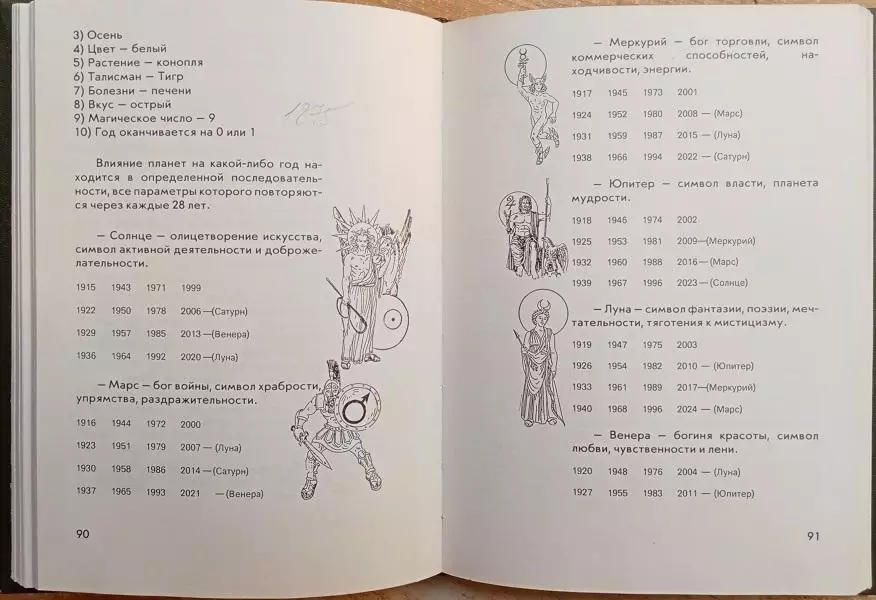 3) Осень
4) Цвет – белый
5) Растение – конопля
6) Талисман – Тигр
7) Болезни – печени
8) Вкус – острый
9) Магическое число – 9
10) Год оканчивается на 0 или 1
Влияние планет на какой-либо год на-
ходится в определенной последователь-
ности, все параметры которого повторяют-
ся через каждые 28 лет.
– Солнце – олицетворение искусства,
символ активной деятельности и доброже-
лательности.
1915 1943 1971 1999
1922 1950 1978 2006 —(Сатурн)
1929 1957 1985 2013 —(Венера)
1936 1964 1992 2020 —(Луна)
– Марс – бог войны, символ храбрости,
упрямства, раздражительности.
1916 1944 1972 2000
1923 1951 1979 2007 — (Луна)
1930 1958 1986 2014 —(Сатурн)
1937 1965 1993 2021 —(Венера)
90
– Меркурий – бог торговли, символ
коммерческих способностей, на-
ходчивости, энергии.
1917 1945 1973 2001
1924 1952 1980 2008 — (Марс)
1931 1959 1987 2015 — (Луна)
1938 1966 1994 2022 — (Сатурн)
– Юпитер – символ власти, планета
мудрости.
1918 1946 1974 2002
1925 1953 1981 2009—(Меркурий)
1932 1960 1988 2016 — (Марс)
1939 1967 1996 2023 — (Солнце)
– Луна – символ фантазии, поэзии, меч-
тательности, тяготения к мистицизму.
1919 1947 1975 2003
1926 1954 1982 2010 — (Юпитер)
1933 1961 1989 2017—(Меркурий)
1940 1968 1996 2024 — (Марс)
– Венера – богиня красоты, символ
любви, чувственности и лени.
1920 1948 1976 2004 — (Луна)
1927 1955 1983 2011 — (Юпитер)
91